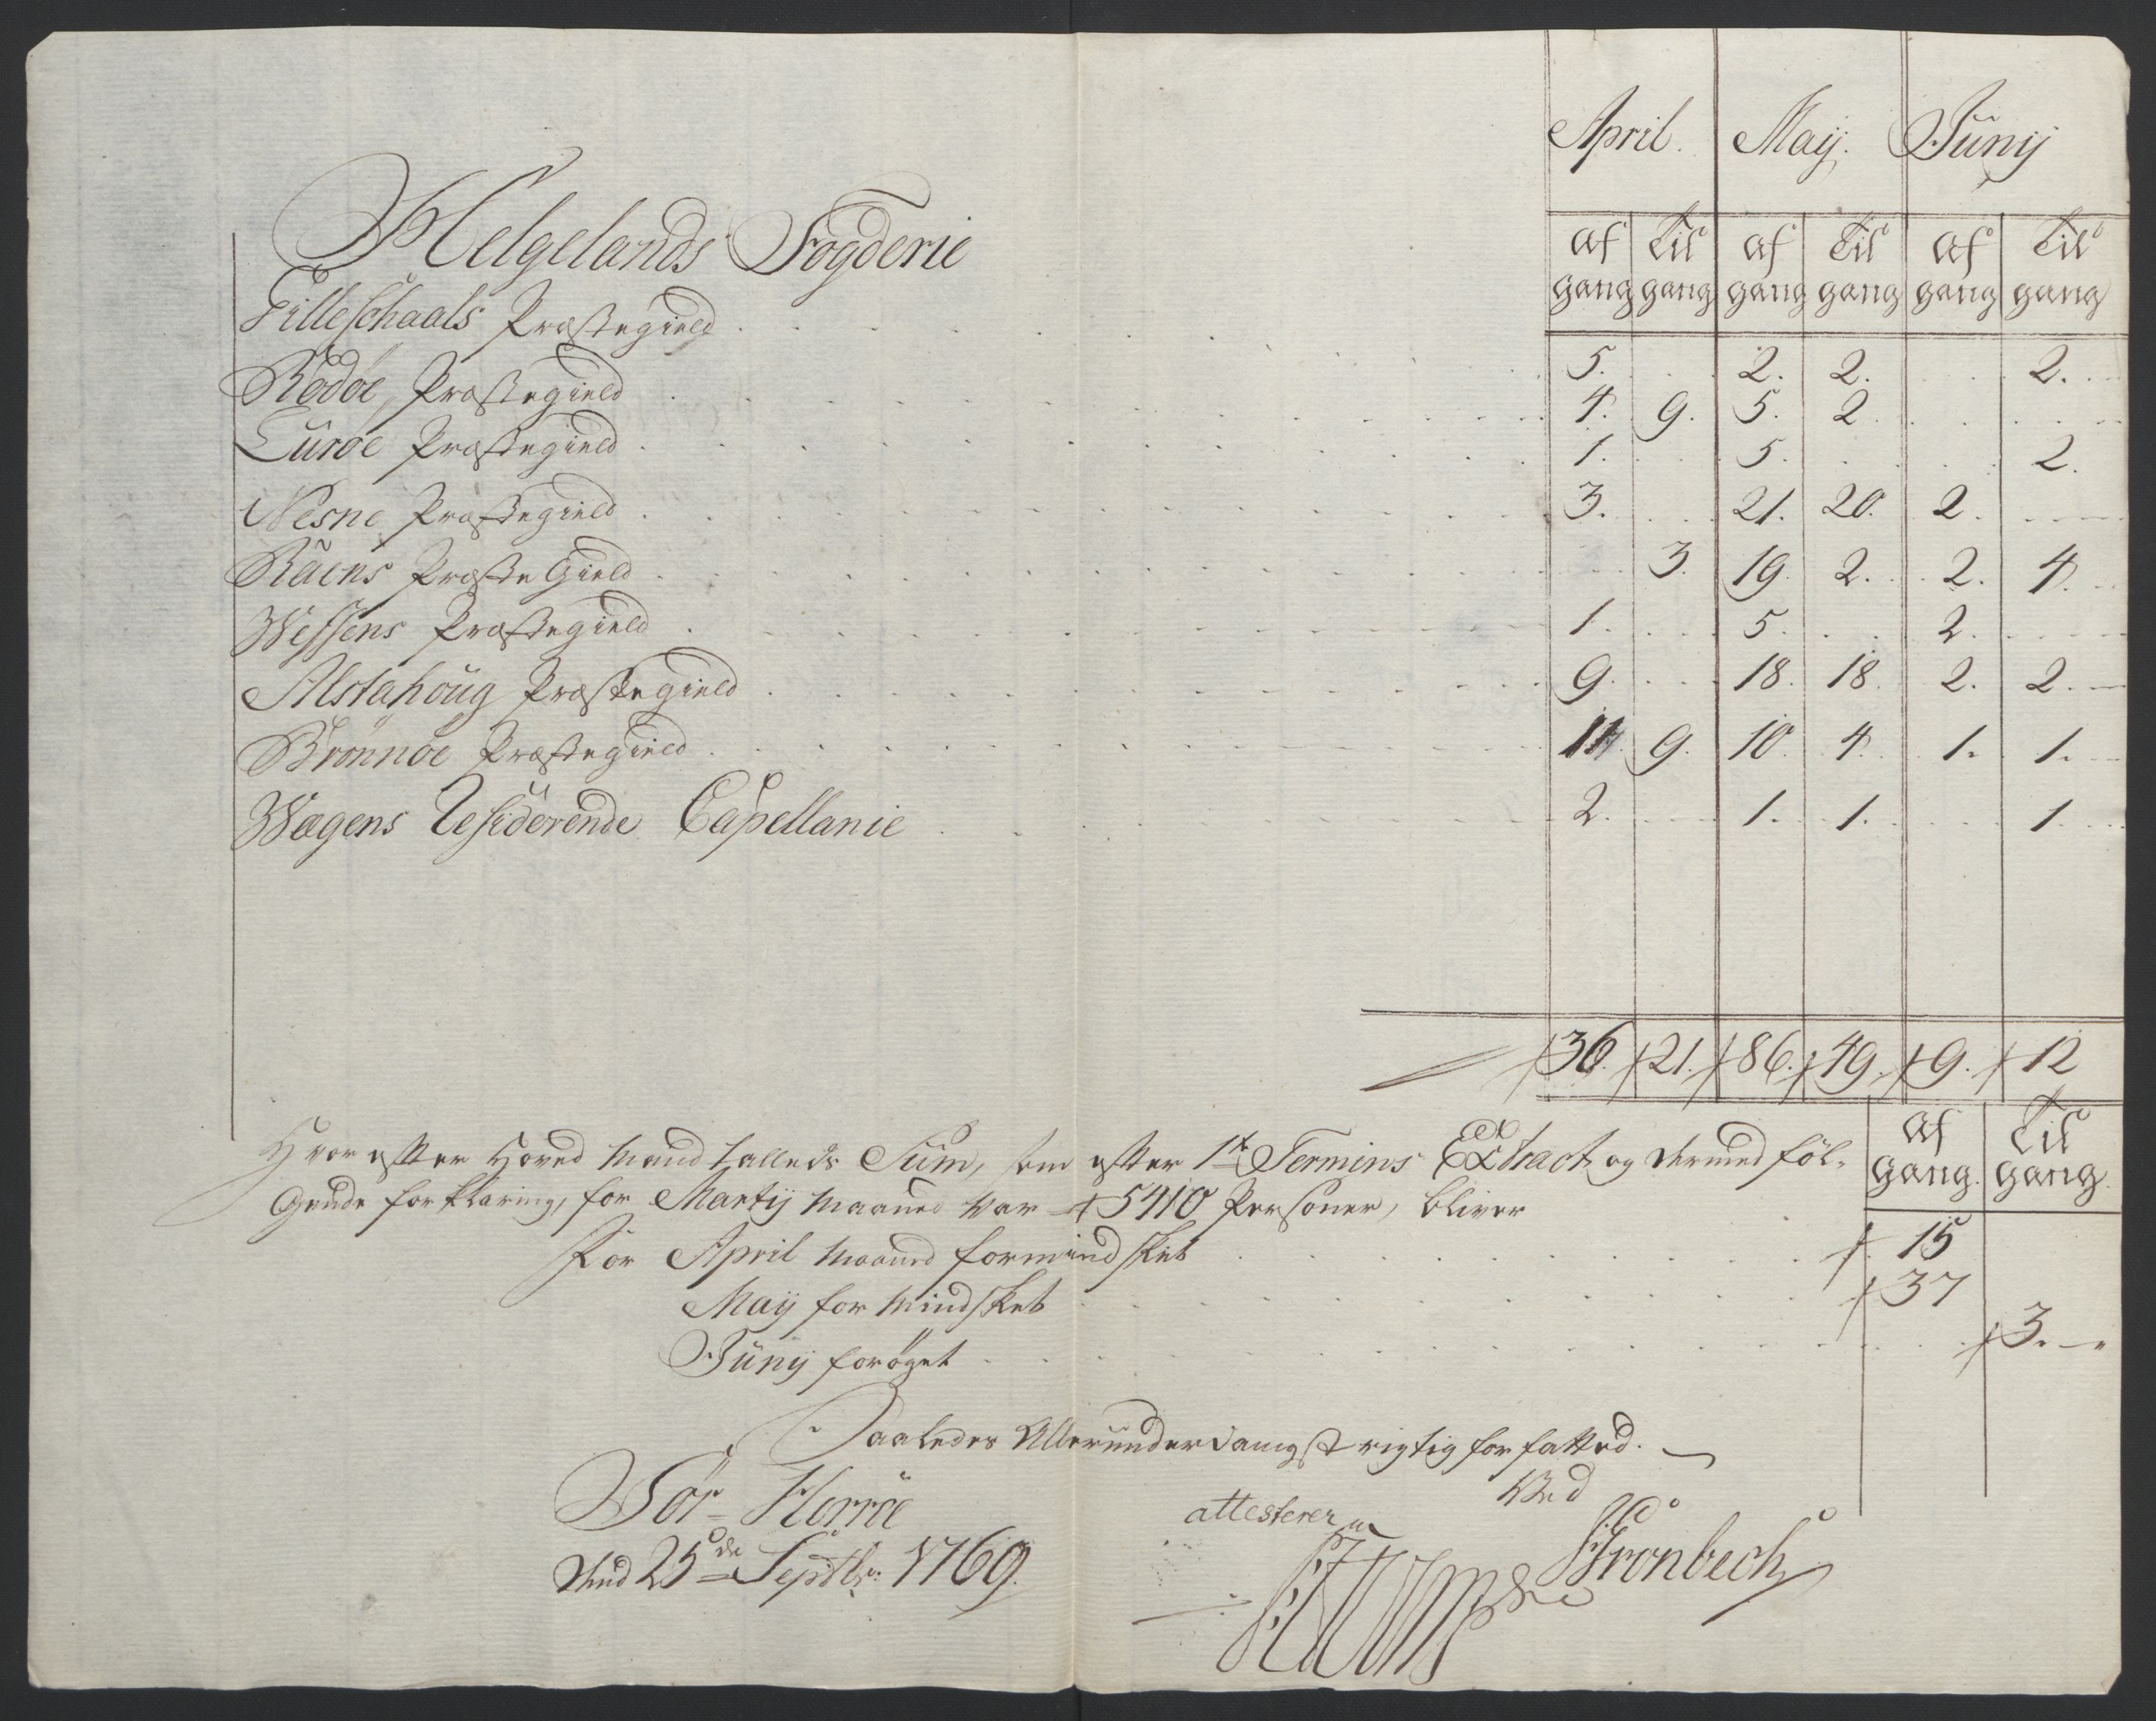 April. Maij. Junij
Helgelands Fogderie
af gang Til gang af gang Til gang af gang Til gang
Gilleschaals Præstegield 5. 2. 2. 2.
Rødøe, Præstegield 4. 9. 5. 2
Lurøe Præstegield 1. 5. 2.
Nesne Præstegield 3. 21. 20. 2.
Raens Præste Gield 3. 19. 2. 2. 4.
Wefsens Præstegield 1. 5. 2.
Alstahoug Præstegield 9. 18. 18. 2. 2.
Brönnöe Præstegield 11. 9. 10. 4. 1. 1.
Wægens Residerende Capellanie 2. 1. 1. 1.
36. 21. 86. 49. 9. 12
af gang. Til gang.
Hvor efter Hoved Mandtalleds Sum, som efter 1te Termins Extract og dermed föl-
gende forklaring, for Martij Maaned var 5410 Personer, bliver
For April Maaned formindsket 15
Maij formindsket 37
Junij forøget 3.
Saaledes Allerunderdanigst rigtig forfatted.
Sör-Herröe Ved
attesterer
dend 25de Septbr: 1769. Gronbech